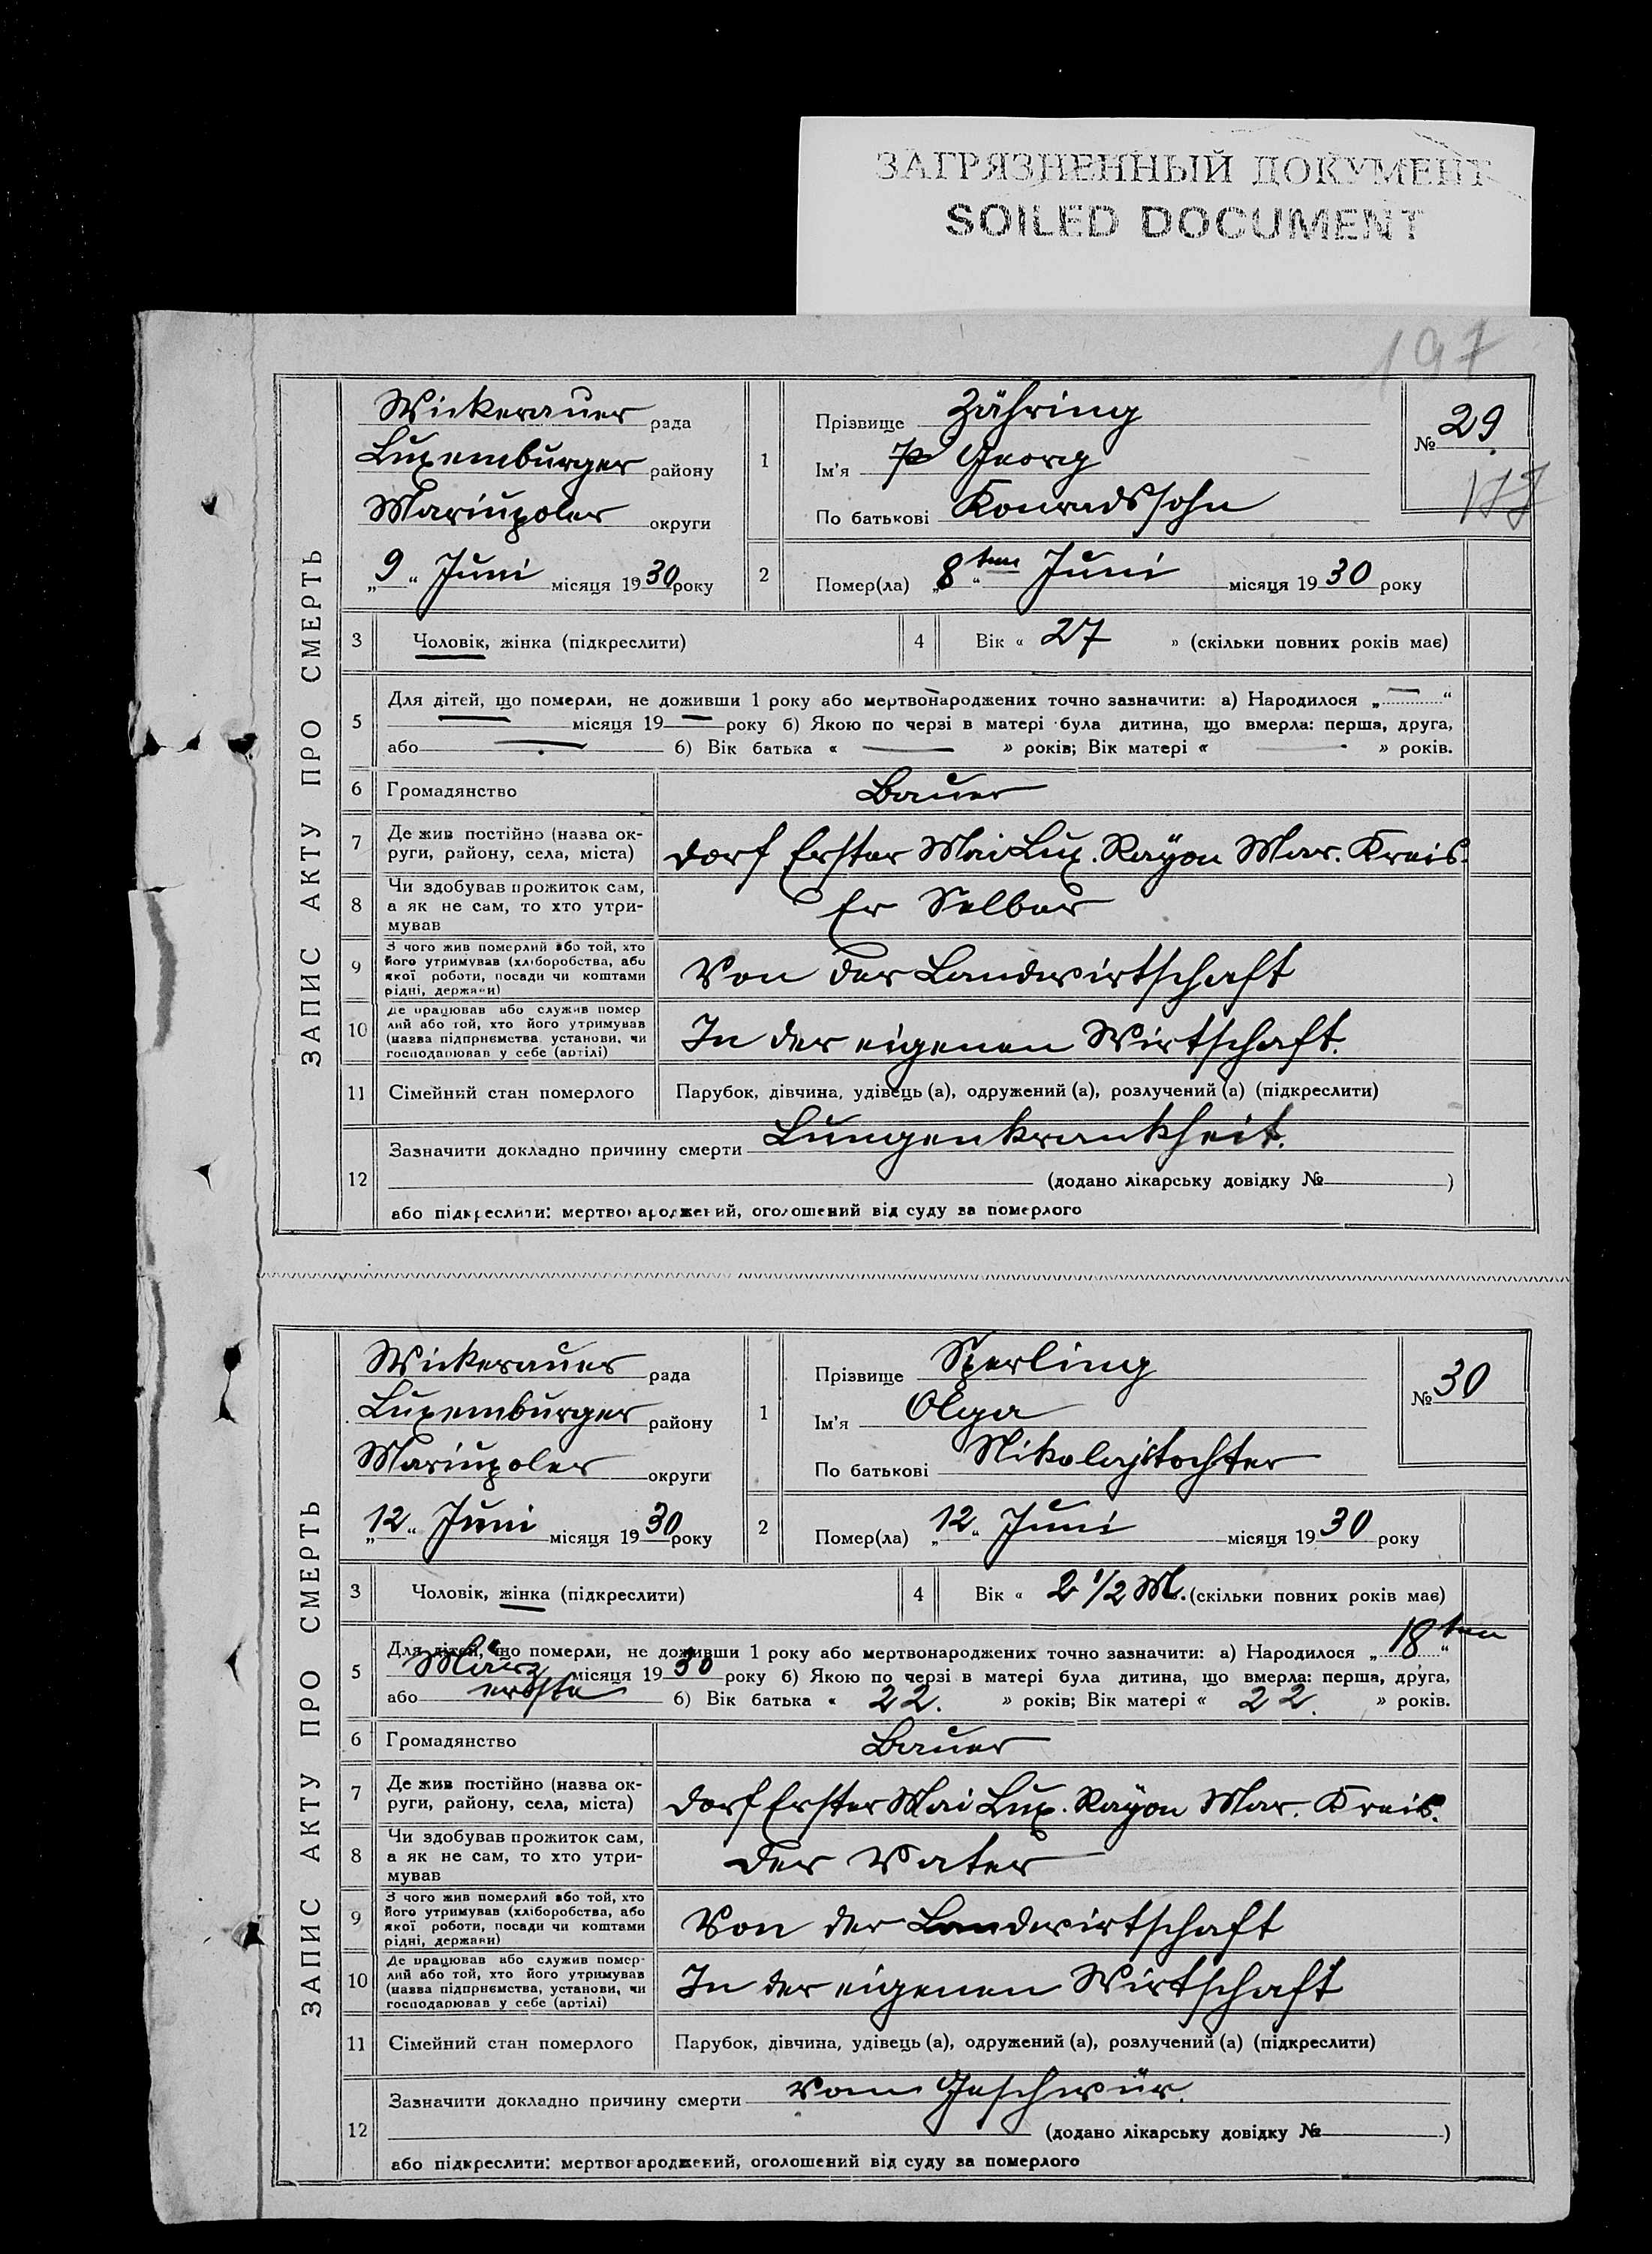 ЗАГРЯЗНЕННЫЙ ДОКУМЕНТ
SOILED DOCUMENT
197
ЗАПИС АКТУ ПРО СМЕРТЬ
Wickerauer рада
Luxemburger району
Mariupoler округи
„9“ Juni місяця 1930 року
1
Прізвище Zähring
Ім'я Georg
По батькові Konradssohn
№ 29
177
2
Помер(ла) „8ten“ Juni місяця 1930 року
3 Чоловік, жінка (підкреслити)
4 Вік « 27 » (скільки повних років має)
5 Для дітей, що померли, не доживши 1 року або мертвонароджених точно зазначити: а) Народилося „—“
— місяця 19— року б) Якою по черзі в матері була дитина, що вмерла: перша, друга,
або — б) Вік батька « — » років; Вік матері « — » років.
6 Громадянство Bauer
7 Де жив постійно (назва ок-
руги, району, села, міста) Dorf Erster Mai Lux. Rayon Mar. Kreis.
8 Чи здобував прожиток сам,
а як не сам, то хто утри-
мував Er Selber
9 З чого жив померлий або той, хто
його утримував (хліборобства, або
якої роботи, посади чи коштами
рідні, держави) Von der Landwirtschaft
10 Де працював або служив помер
лий або той, хто його утримував
(назва підприємства, установи, чи
господарював у себе (артілі) In der eigenen Wirtschaft.
11 Сімейний стан померлого Парубок, дівчина, удівець (а), одружений (а), розлучений (а) (підкреслити)
12 Зазначити докладно причину смерти Lungenkrankheit.
(додано лікарську довідку № )
або підкреслити: мертвонароджений, оголошений від суду за померлого
ЗАПИС АКТУ ПРО СМЕРТЬ
Wickerauer рада
Luxemburger району
Mariupoler округи
„12“ Juni місяця 1930 року
1
Прізвище Sperling
Ім'я Olga
По батькові Nikolajstochter
№ 30
2
Помер(ла) „12“ Juni місяця 1930 року
3 Чоловік, жінка (підкреслити)
4 Вік « 2 1/2 M. (скільки повних років має)
5 Для дітей, що померли, не доживши 1 року або мертвонароджених точно зазначити: а) Народилося „18ten“
März місяця 1930 року б) Якою по черзі в матері була дитина, що вмерла: перша, друга,
або erste б) Вік батька « 22. » років; Вік матері « 22. » років.
6 Громадянство Bauer
7 Де жив постійно (назва ок-
руги, району, села, міста) Dorf Erster Mai Lux. Rayon Mar. Kreis.
8 Чи здобував прожиток сам,
а як не сам, то хто утри-
мував Der Vater
9 З чого жив померлий або той, хто
його утримував (хліборобства, або
якої роботи, посади чи коштами
рідні, держави) Von der Landwirtschaft
10 Де працював або служив помер-
лий або той, хто його утримував
(назва підприємства, установи, чи
господарював у себе (артілі) In der eigenen Wirtschaft
11 Сімейний стан померлого Парубок, дівчина, удівець (а), одружений (а), розлучений (а) (підкреслити)
12 Зазначити докладно причину смерти vom Geschwür.
(додано лікарську довідку № )
або підкреслити: мертвонароджений, оголошений від суду за померлого